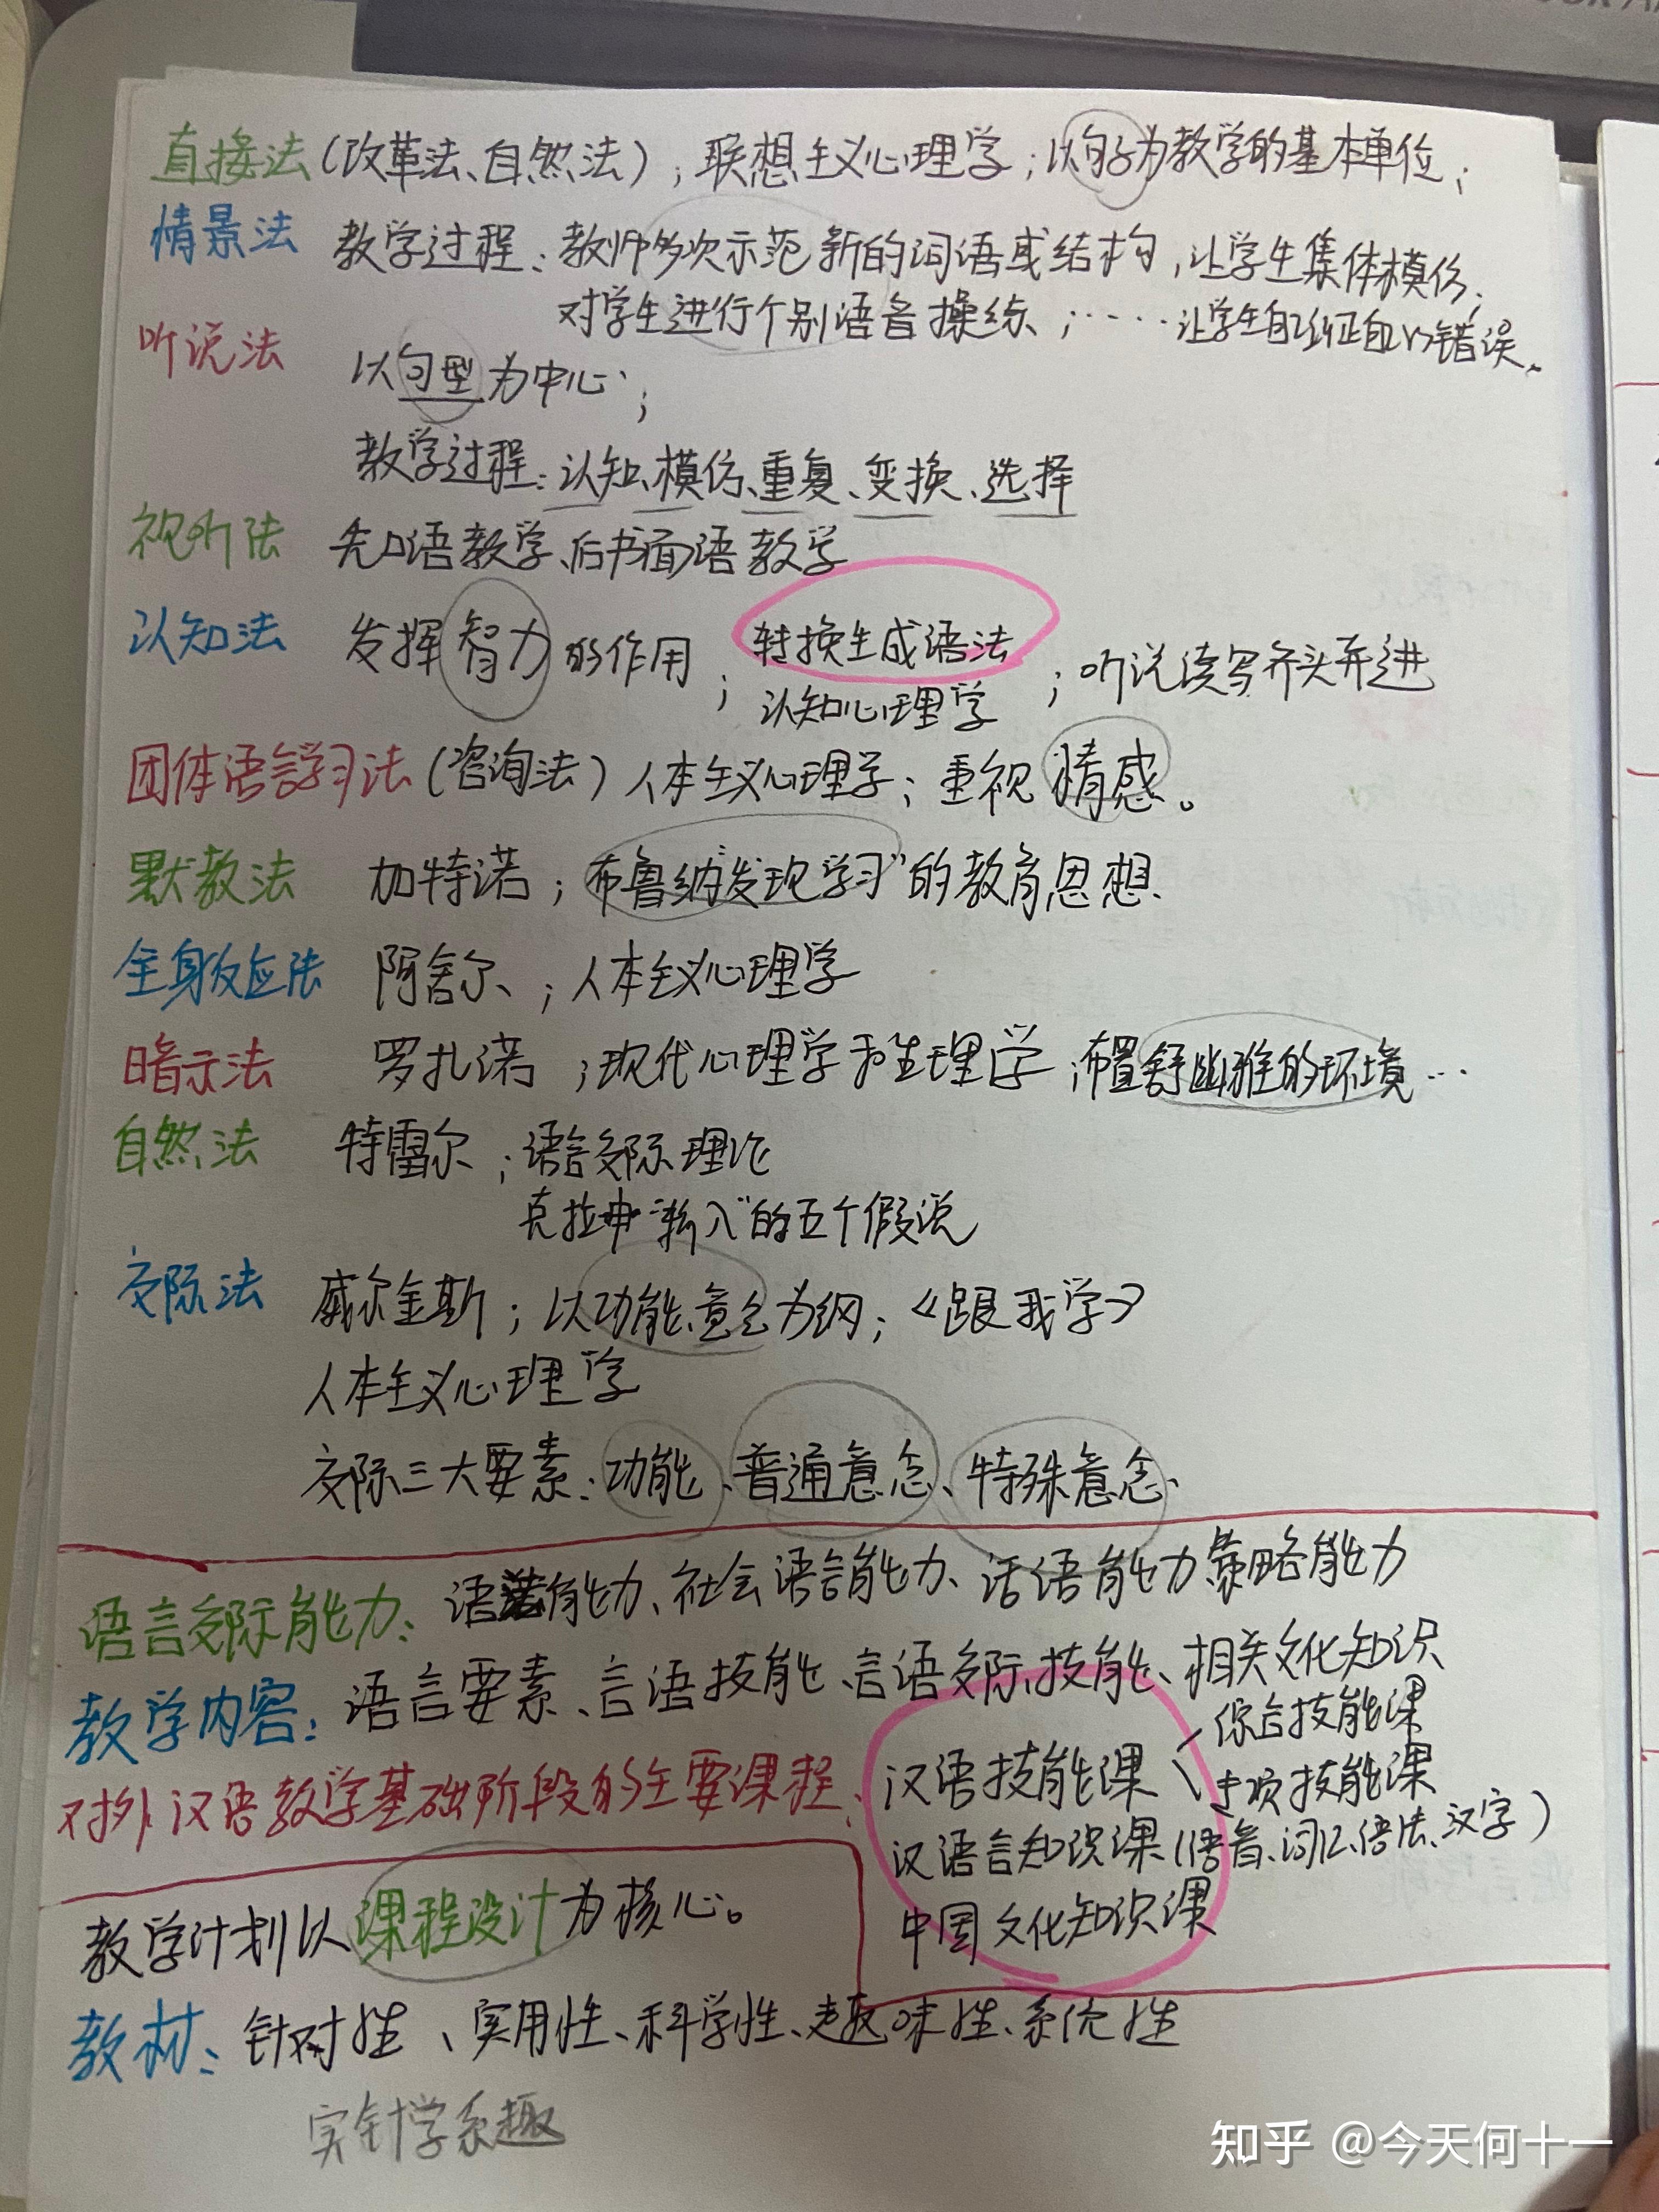 直接法（改革法、自然法）；联想主义心理学；以句子为教学的基本单位；
情景法 教学过程：教师多次示范新的词语或结构，让学生集体模仿；
对学生进行个别语音操练；……让学生自己纠正自己的错误。
听说法 以句型为中心；
教学过程：认知、模仿、重复、变换、选择
视听法 先口语教学、后书面语教学
认知法 发挥智力的作用；转换生成语法；听说读写齐头并进
认知心理学
团体语言学习法（咨询法）人本主义心理学；重视情感。
默教法 加特诺；布鲁纳“发现学习”的教育思想.
全身反应法 阿舍尔、；人本主义心理学
暗示法 罗扎诺；现代心理学和生理学；布置舒幽雅的环境…
自然法 特雷尔；语言交际理论
克拉申“输入”的五个假说
交际法 威尔金斯；以功能、意念为纲；《跟我学》
人本主义心理学
交际三大要素：功能、普通意念、特殊意念.
语言交际能力：语法能力、社会语言能力、话语能力、策略能力
教学内容：语言要素、言语技能、言语交际技能、相关文化知识
对外汉语教学基础阶段的主要课程：汉语技能课 综合技能课
专项技能课
汉语言知识课（语音、词汇、语法、汉字）
中国文化知识课
教学计划以课程设计为核心。
教材：针对性、实用性、科学性、趣味性、系统性
实针学系趣
知乎 @今天何十一